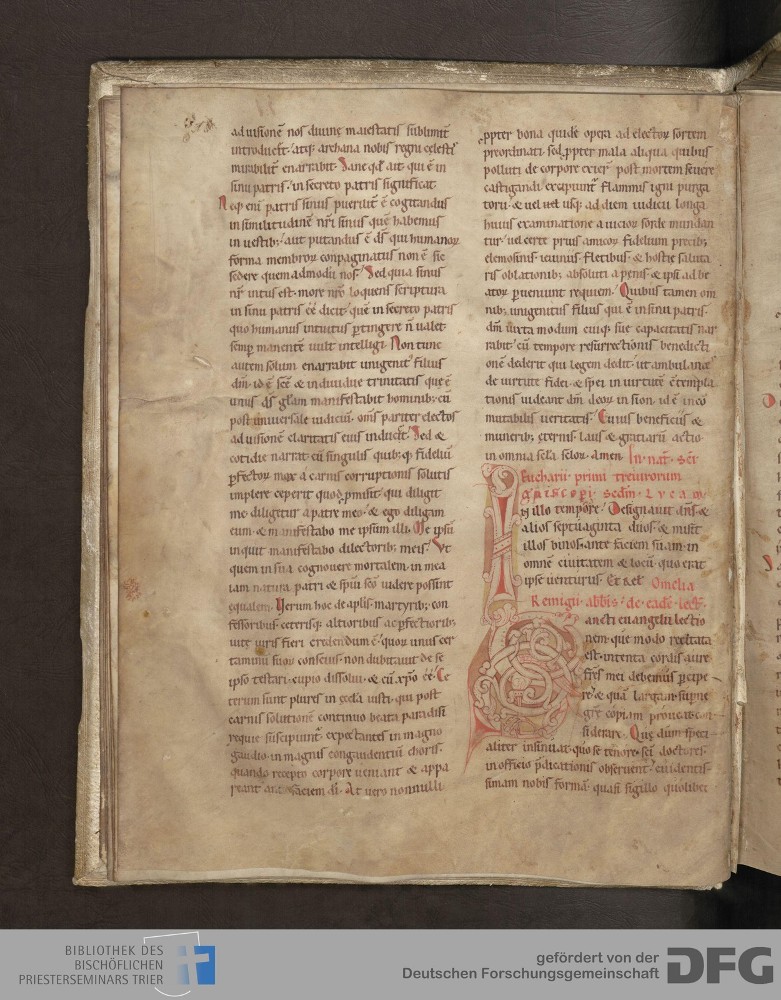 ad uisionē nos diuinę maiestatis sublimit̄
introduc̄t. atq; archana nobis regni cęlesti
mirabilit̄ enarrabit. Sane qd̄ ait. qui ē in
sinu patris. in secreto patris significat.
Neq; eni patris sinus pueriliť ē cogitandus
in similitudinē nr̄i sinus quē habemus
in uestib; aut putandus ē ds̄ qui humanoꝝ
forma membroꝝ conpaginatus non ē sic
sedere quemadmodū nos. Sed quia sinus
nr̄ intus est. more nr̄o loquens scriptura
in sinu patris eē dicit. quē in secreto patris
quo humanus intuitus ꝑtingere n̄ ualet.
semꝑ manentē uult intelligi. Non tunc
autem solum enarrabit unigenit᷒ filius
dm̄. id ē scē & indiuiduę trinitatis que ē
unus ds̄ gl̄am manifestabit hominib; cū
post uniuersale iudiciū. oms̄ pariter electos
ad uisionē claritatis eius inducet. Sed &
cotidie narrat. cū singulis quib; q; fideliū
ꝑfectoꝝ mox a carnis corruptionis solutis
implere ceperit quod ꝓmisit. qui diligit
me diligetur a patre meo. & ego diligam
eum. & manifestabo me ipsum illi. Me ipsū
inquit manifestabo dilectorib; meis. Vt
quem in sua cognouere mortalem. in mea
iam natura patri & sp̄ui sc̄o uidere possint
equalem. Verum hoc de ap̄lis. martyrib; con
fessoribus. ceterisq; altioribus ac ꝑfectiorib;
uitę uiris fieri credendum ē. quoꝝ unus cer
taminū suoꝝ conscius. non dubitauit de se
ipso testari. cupio dissolui. & cū xp̄o eē. Ce
terum sunt plures in eccla iusti. qui post
carnis solutionē continuo beata paradisi
requie suscipiunt᷒. expectantes in magno
gaudio. in magnis congaudentiū choris.
quando recepto corpore ueniant & appa
reant ante faciem di. At uero nonnulli
ꝓpter bona quidē opera ad electoꝝ sortem
preordinati. sed ꝓpter mala aliqua quibus
polluti de corpore exier̄. post mortem seuere
castigandi. excipiunt᷒ flammis ignis purga
torii. & uel usq; ad diem iudicii longa
huius examinatione a uicioꝝ sorde mundan
tur. uel certe prius amicoꝝ fidelium precib;
elemosinis. ieiuniis. fletibus. & hostię saluta
ris oblationib; absoluti a penis. & ipsi ad be
atoꝝ ꝑueniunt requiem. Quibus tamen om
nib; unigenitus filius qui ē in sinu patris.
dm̄ iuxta modum cuiq; suę capacitatis nar
rabit. cū tempore resurrectionis benedicti
onē dederit qui legem dedit. ut ambulantes
de uirtute fidei. & spei in uirtutē cōtempla
tionis uideant dm̄ deoꝝ in sion. id ē in cō
mutabilis ueritatis. Cuius beneficiis &
munerib; ęternis. laus & gratiarū actio.
in omnia sc̄la sc̄loꝝ. amen. In nat̄. sc̄i
Eucharii. primi treuirorum
episcopi. secdm̄. Lucam.
In illo tempore. Designauit dn̄s. &
alios septuaginta duos. & misit
illos binos. ante faciem suam. in
omnē ciuitatem & locū. quo erat
ipse uenturus. Et rel. Omelia
Remigii. abbis. de eadē. lect.
Sancti euangelii lectio
nem. quę modo recitata
est. intenta cordis aure
frēs mei debemus ꝑcipe
re. & quā largam supne
gre copiam
siderare. Que dum speci
aliter insinuat. quo se tenore. sc̄i doctores
in officio p̄dicationis obseruent. euidentis
simam nobis formā. quasi sigillo quolibet
BIBLIOTHEK DES
BISCHÖFLICHEN
PRIESTERSEMINARS TRIER
gefördert von der
Deutschen Forschungsgemeinschaft
DFG